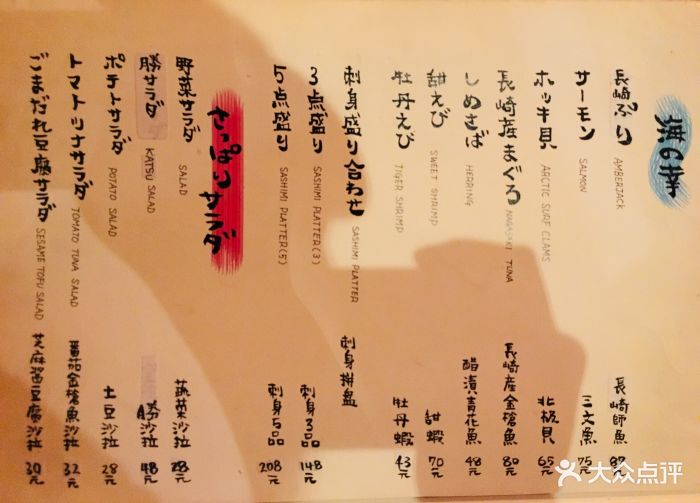 海の幸
長崎ぶり AMBERJACK 長崎鰤魚 87元
サーモン SALMON 三文魚 75元
ホッキ貝 ARCTIC SURF CLAMS 北极貝 65元
長崎産まぐろ NAGASAKI TUNA 長崎產金槍魚 80元
しめさば HERRING 醋漬青花魚 48元
甜えび SWEET SHRIMP 甜蝦 70元
牡丹えび TIGER SHRIMP 牡丹蝦 43元
刺身盛り合わせ SASHIMI PLATTER 刺身拼盘
3点盛り SASHIMI PLATTER(3) 刺身3品 148元
5点盛り SASHIMI PLATTER(5) 刺身5品 208元
さっぱりサラダ
野菜サラダ SALAD 蔬菜沙拉 28元
勝サラダ KATSU SALAD 勝沙拉 48元
ポテトサラダ POTATO SALAD 土豆沙拉 28元
トマトツナサラダ TOMATO TUNA SALAD 番茄金槍魚沙拉 32元
ごまだれ豆腐サラダ SESAME TOFU SALAD 芝麻酱豆腐沙拉 30元
大众点评